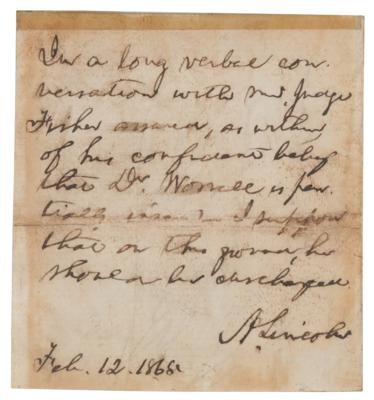 In a long verbal con-
versation with me, Judge
Fisher assures, as within
of his confident belief
that Dr. Worrell is par-
tially insane I suppose
that on this ground, he
should be discharged.
A. Lincoln
Feb. 12. 1865